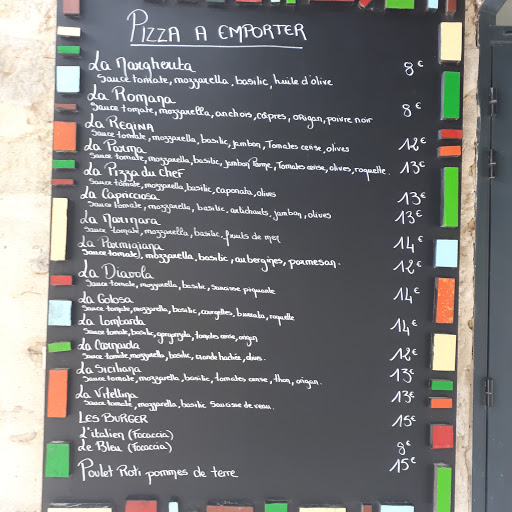 PIZZA A EMPORTER
La Margherita 8€
Sauce tomate, mozzarella, basilic, huile d'olive
La Romana 8€
Sauce tomate, mozzarella, anchois, câpres, origan, poivre noir
La Regina 12€
Sauce tomate, mozzarella, basilic, jambon, Tomates cerise, olives
La Parma 13€
Sauce tomate, mozzarella, basilic, jambon Parme, Tomates cerise, olives, roquette.
La Pizza du chef 13€
Sauce tomate, mozzarella, basilic, caponata, olives
La Capricciosa 13€
Sauce tomate, mozzarella, basilic, artichauts, jambon, olives
La Marinara 14€
Sauce tomate, mozzarella, basilic, fruits de mer
La Parmigiana 12€
Sauce tomate, mozzarella, basilic, aubergines, parmesan.
La Diavola 14€
Sauce tomate, mozzarella, basilic, saucisse piquante
La Golosa 14€
Sauce tomate, mozzarella, basilic, courgettes, burrata, roquette
La Lombarda
Sauce tomate, basilic, gorgonzola, tomates cerise, origan
La Carnarda 12€
Sauce tomate, mozzarella, basilic, viande hachée, olives.
La Siciliana 13€
Sauce tomate, mozzarella, basilic, tomates cerise, thon, origan.
La Vitellina 13€
Sauce tomate, mozzarella, basilic Saucisse de veau.
LES BURGER 15€
L'italien (Focaccia)
Le Bleu (Focaccia) 8€
Poulet Roti pommes de terre 15€